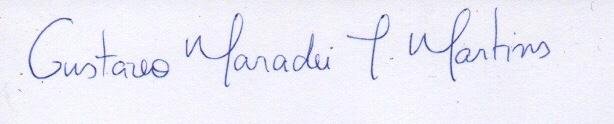 Gustavo Maradei T. Martins